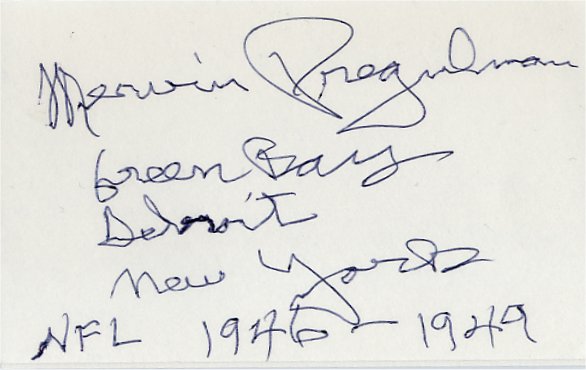 Mervin Pregulman
Green Bay
Detroit
New York
NFL 1946-1949